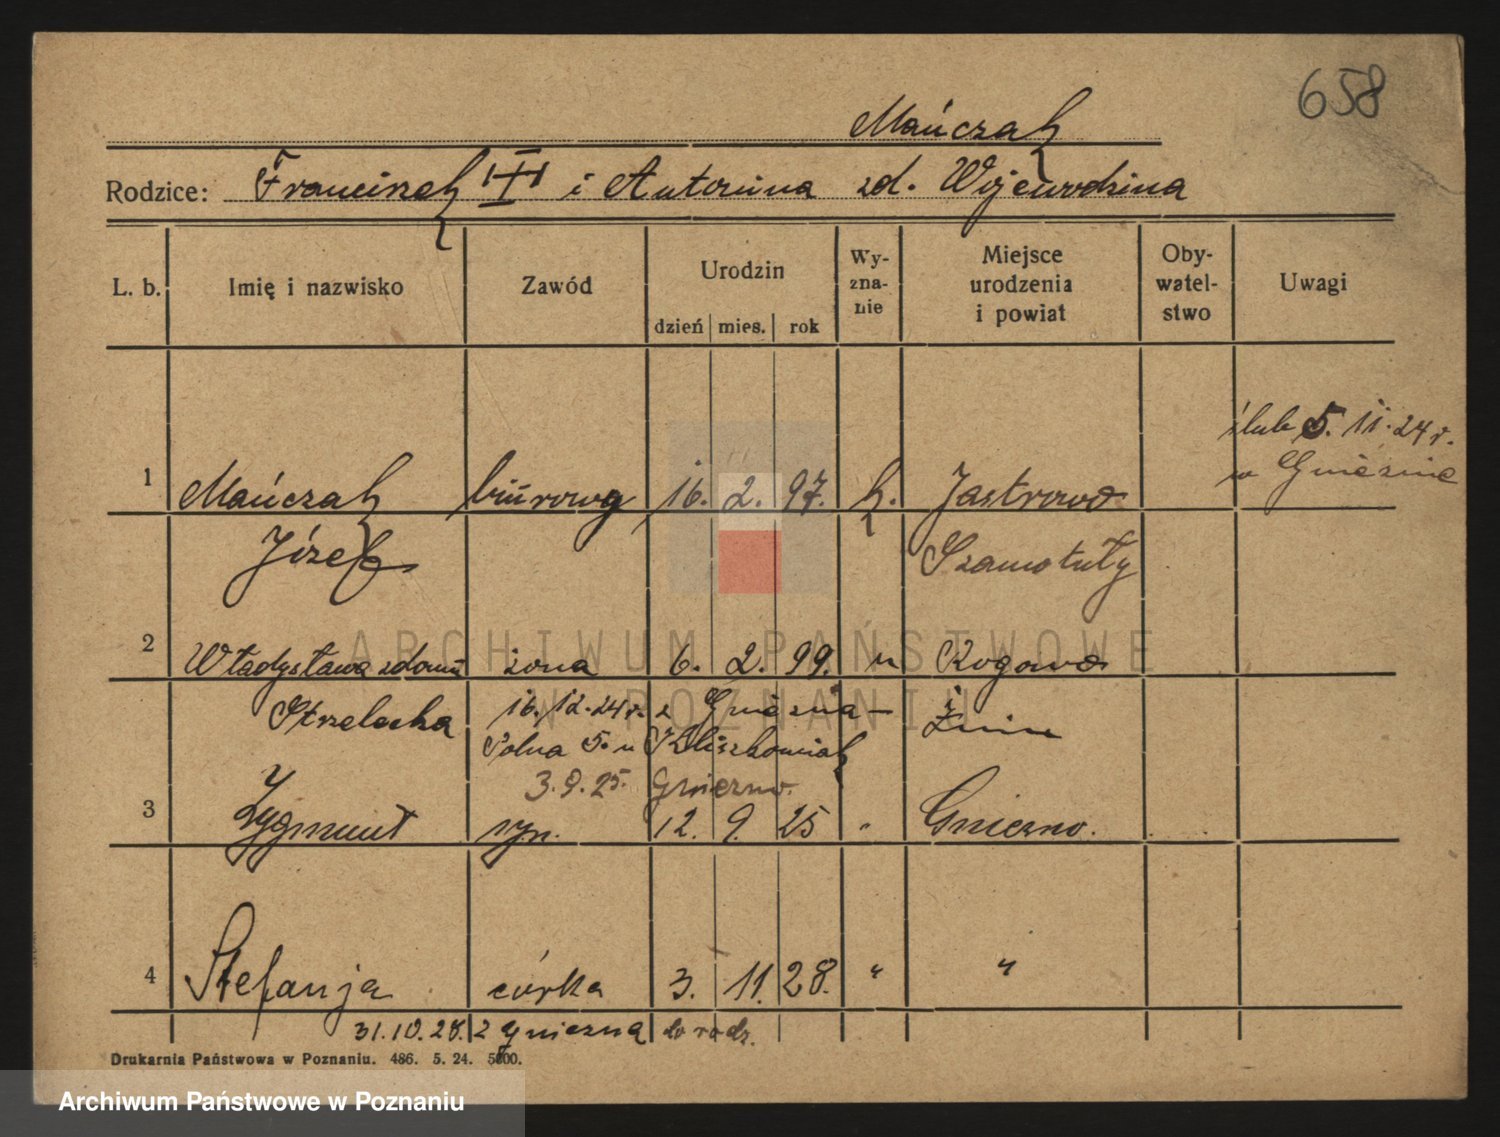 658
Mańczak
Rodzice: Franciszek III i Antonina zd. Wojewodzina
L. b. Imię i nazwisko Zawód Urodzin dzień mies. rok Wy-zna-nie Miejsce urodzenia i powiat Oby-watel-stwo Uwagi
ślub 5. 11. 24 r.
w Gnieźnie
1 Mańczak biurowy 16. 2. 97. k. Jastrowo
Józef Szamotuły
ARCHIWUM PAŃSTWOWE
W POZNANIU
2 Władysława z domu żona 6. 2. 99. " Rogowo
Strzelecka 16. 12. 24 r. z Gniezna – Żnin
Polna 5. u Kliszkowiak
3. 9. 25. Gniezno.
3 Zygmunt syn. 12. 9. 25 " Gniezno.
4 Stefanja córka 3. 11. 28. " "
31.10.28. z Gniezna do rodz.
Drukarnia Państwowa w Poznaniu. 486. 5. 24. 5000.
Archiwum Państwowe w Poznaniu